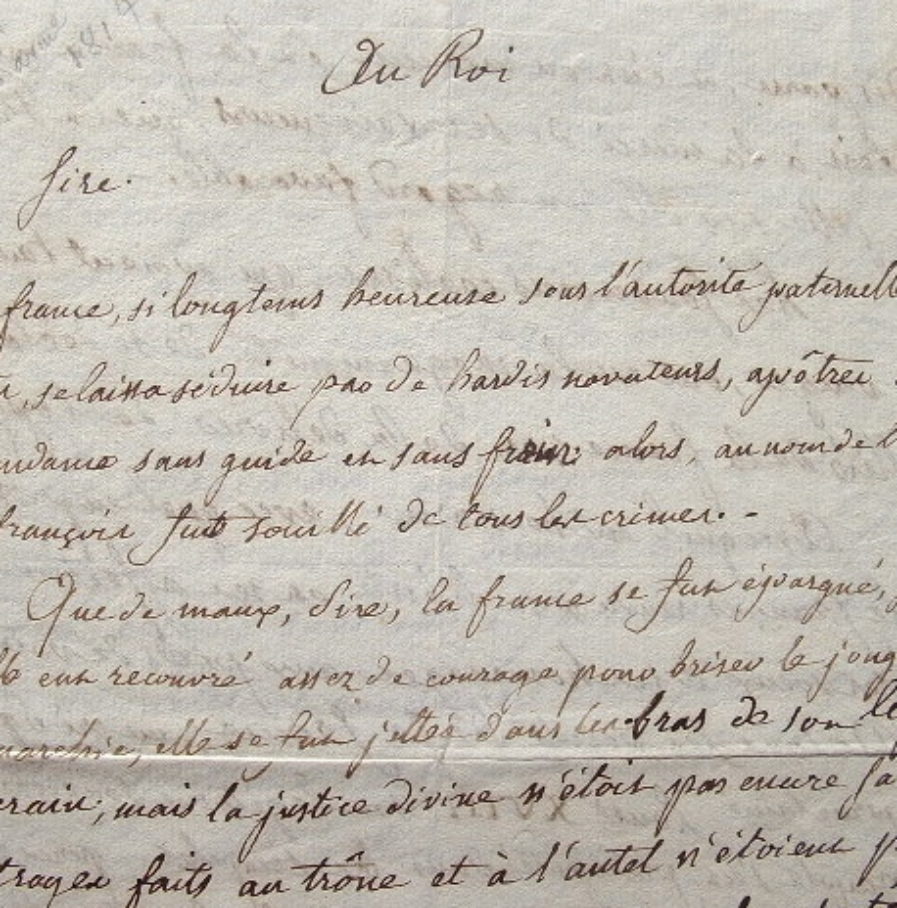 Au Roi
Sire.
france, si longtems heureuse sous l'autorité paternelle
se laissa séduire par de hardis novateurs, apôtres
ndance sans guide et sans frein: alors, au nom de l
françois fut souillé de tous les crimes. -
Que de maux, Sire, la france se fut épargné,
eut recouvré assez de courage pour briser le joug
narchie, elle se fut jettée dans les bras de son lé
erain; mais la justice divine n'étoit pas encore sa
trages faits au trône et à l'autel n'étoient p